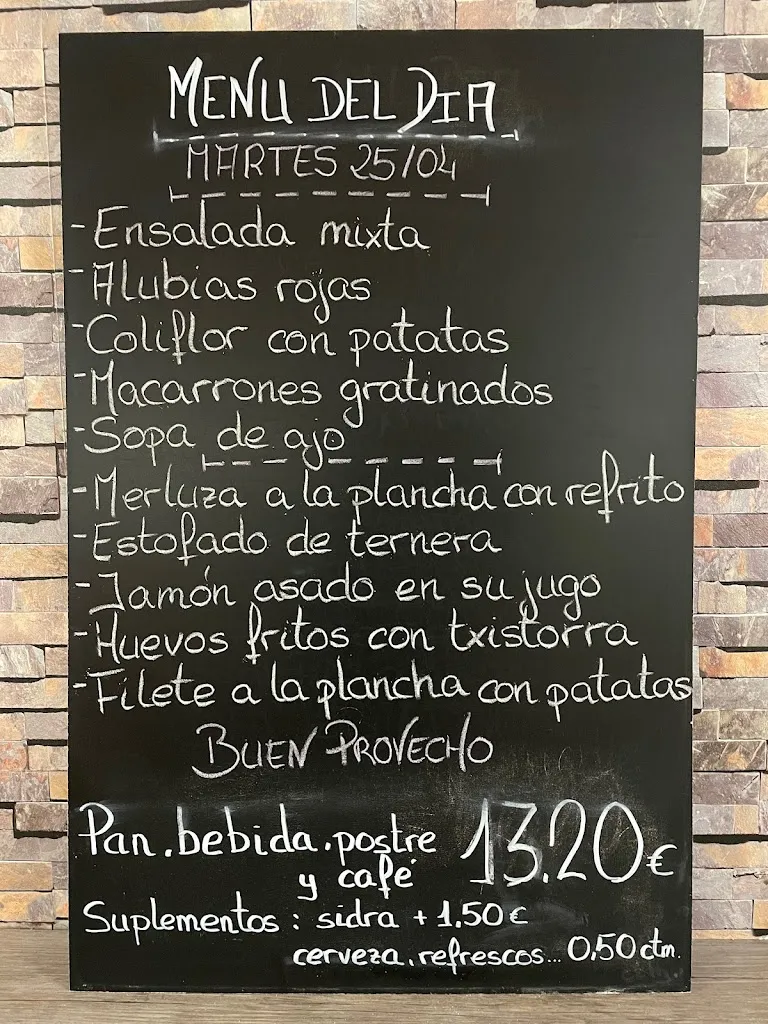 MENU DEL DIA
MARTES 25/04
- Ensalada mixta
- Alubias rojas
- Coliflor con patatas
- Macarrones gratinados
- Sopa de ajo
- Merluza a la plancha con refrito
- Estofado de ternera
- Jamón asado en su jugo
- Huevos fritos con txistorra
- Filete a la plancha con patatas
BUEN PROVECHO
Pan.bebida.postre 13.20€
y café
Suplementos: sidra + 1.50€
cerveza.refrescos... 0,50 ctm.